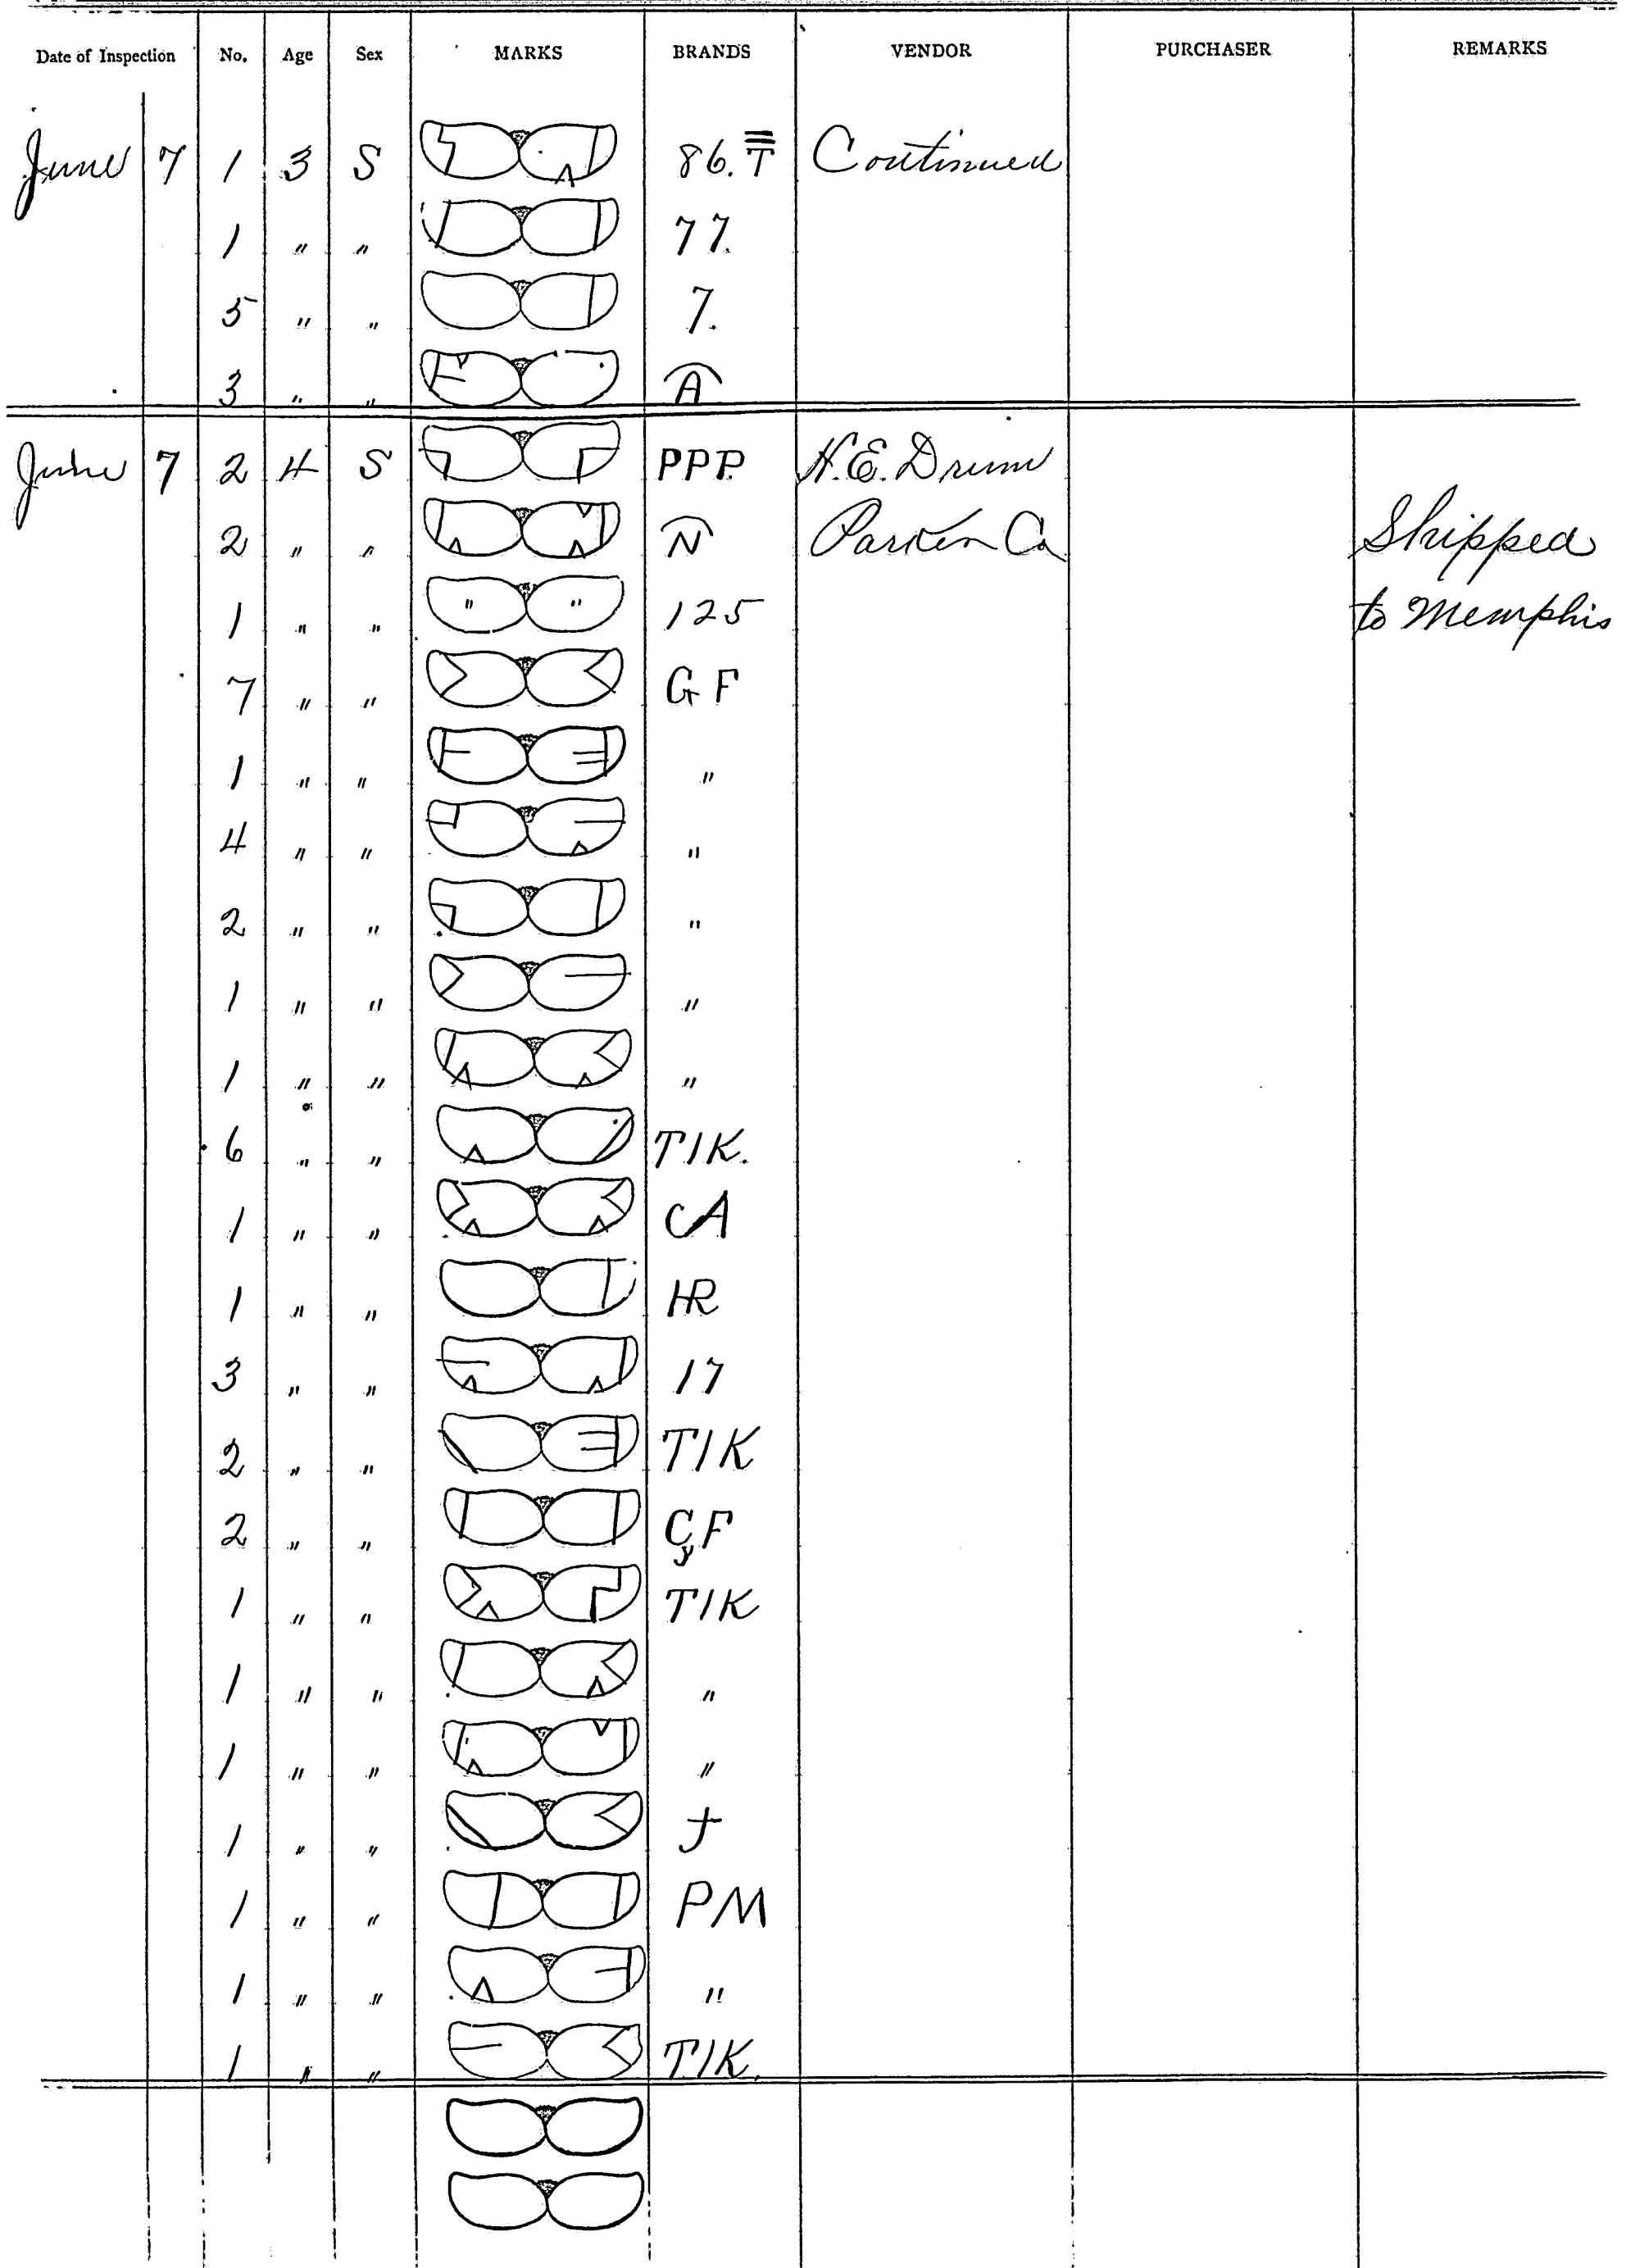 Date of Inspection No. Age Sex MARKS BRANDS VENDOR PURCHASER REMARKS
June 7 1 3 S 86. T Continued
1 " " 77.
5 " " 7.
3 " " A
June 7 2 4 S PPP. H.E. Drum
2 " " N Parker Co Shipped
1 " " " " 125 to Memphis
7 " " GF
1 " " "
4 " " "
2 " " "
1 " " "
1 " " "
6 " " TIK.
1 " " CA
1 " " HR
3 " " 17
2 " " TIK
2 " " CF
y
1 " " TIK
1 " " "
1 " " "
1 " " J
1 " " PM
1 " " "
1 " " TIK.